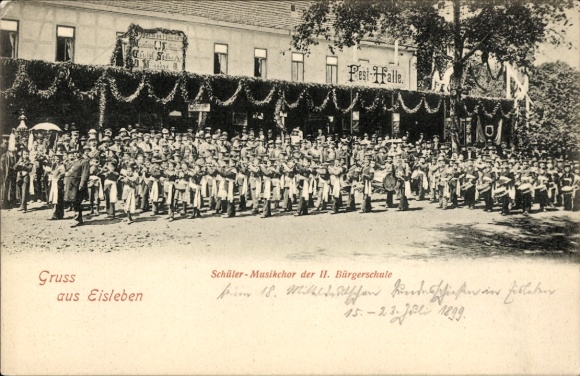 Fest-Halle.
Fest-Halle.
Schüler-Musikchor der II. Bürgerschule
Gruss
aus Eisleben
beim 18. Mitteldeutschen Bundesschießen in Eisleben
15. - 23. Juli 1899.